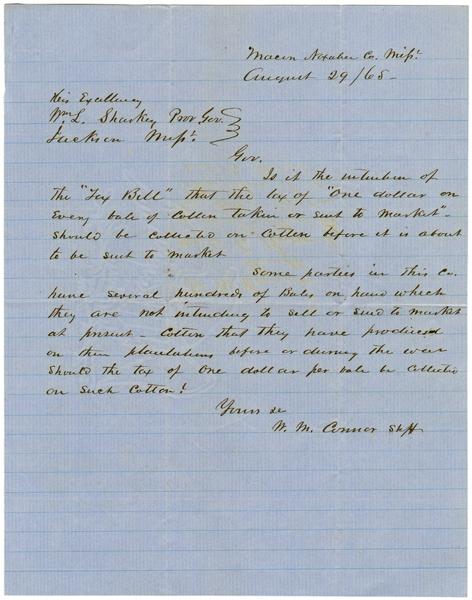 Macon Noxubee Co. Misst.
August 29/65-
His Excellency
Wm. L. Sharkey Prov. Gov.
Jackson Misst.
Gov.
Is it the intention of
the "Tax Bill" that the tax of "One dollar on
Every bale of Cotton taken or sent to market"-
should be collected on Cotton before it is about
to be sent to market
Some parties in this Co.
have several hundreds of Bales on hand which
they are not intending to sell or send to market
at present - Cotton that they have produced
on their plantations before or during the war
Should the tax of One dollar per bale be collected
on such Cotton?
Yours &c
W. M. Connor Shff